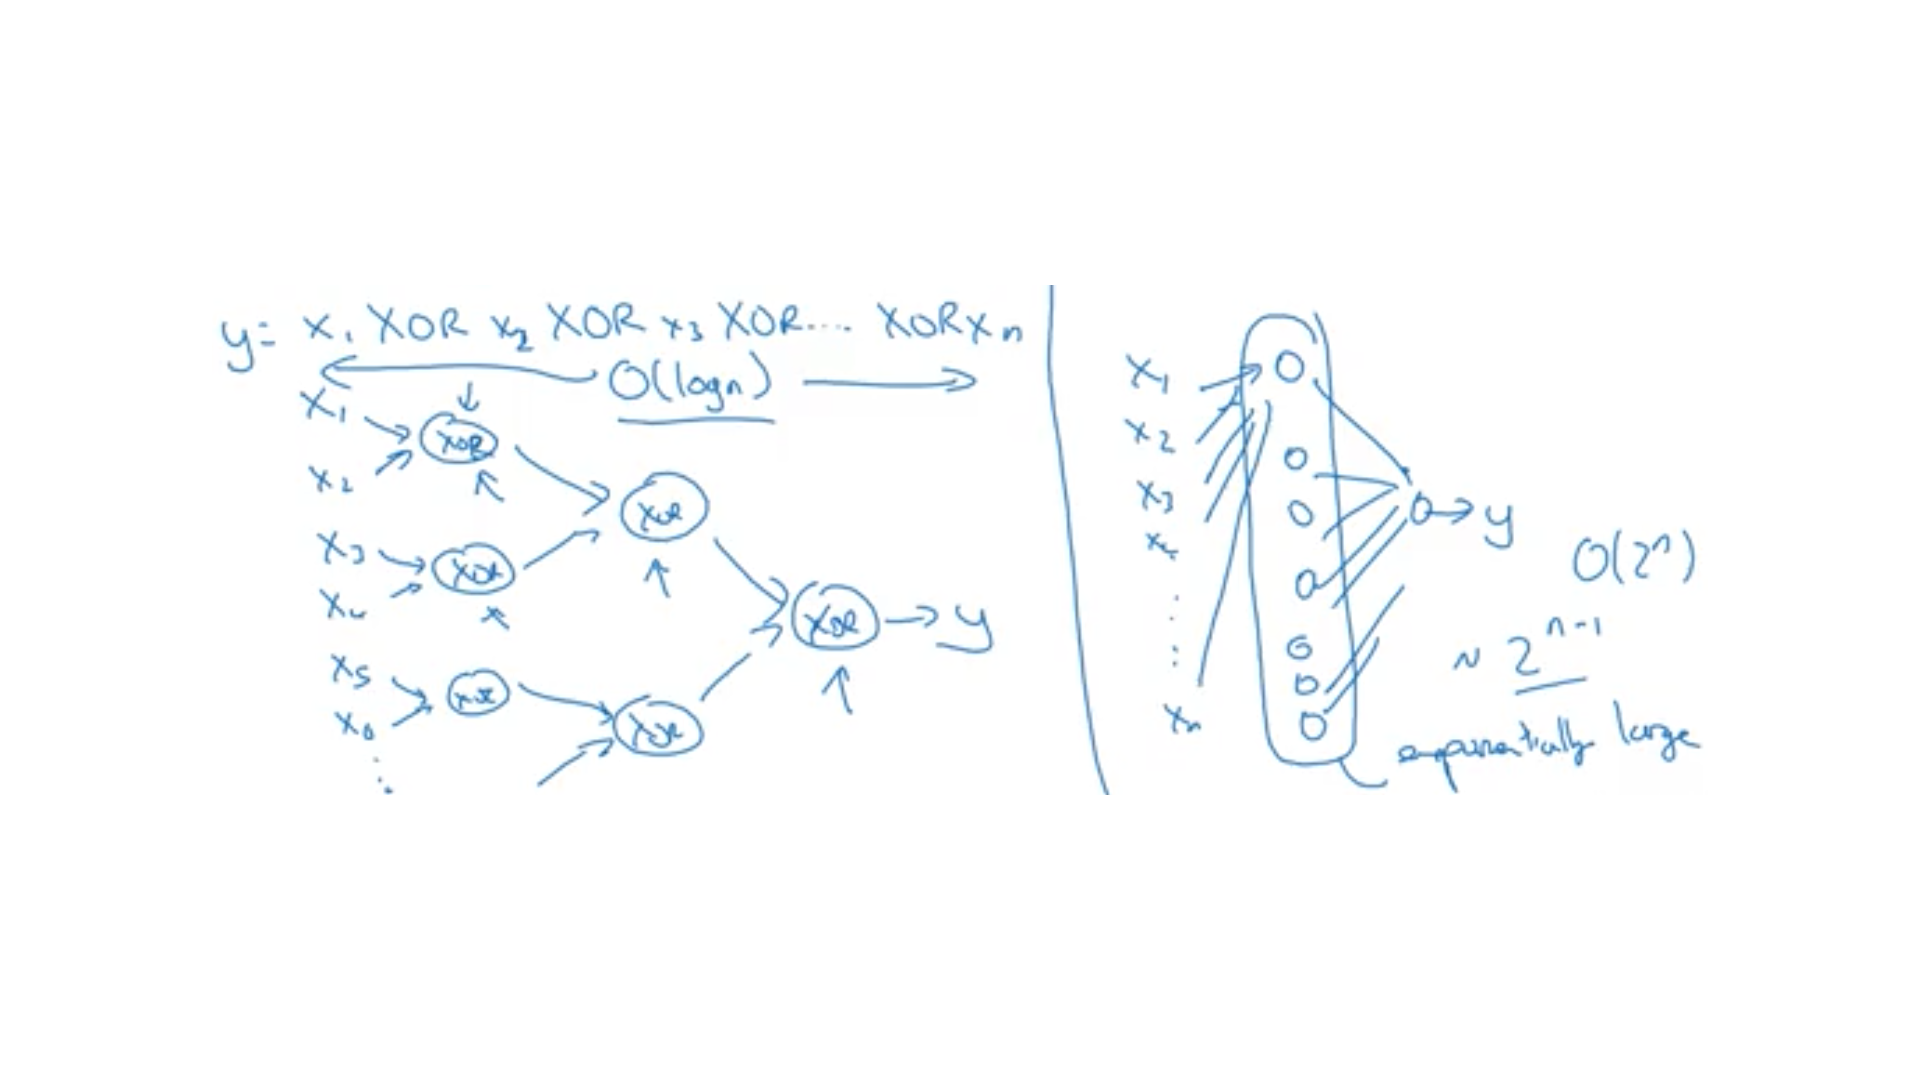 y = x1 XOR x2 XOR x3 XOR .... XOR xn
O(logn)
x1
x2
x3
x4
x5
x6
XOR
XOR
XOR
XOR
XOR
XOR
y
x1
x2
x3
x4
xn
y
O(2^n)
~ 2^n-1
exponentially large